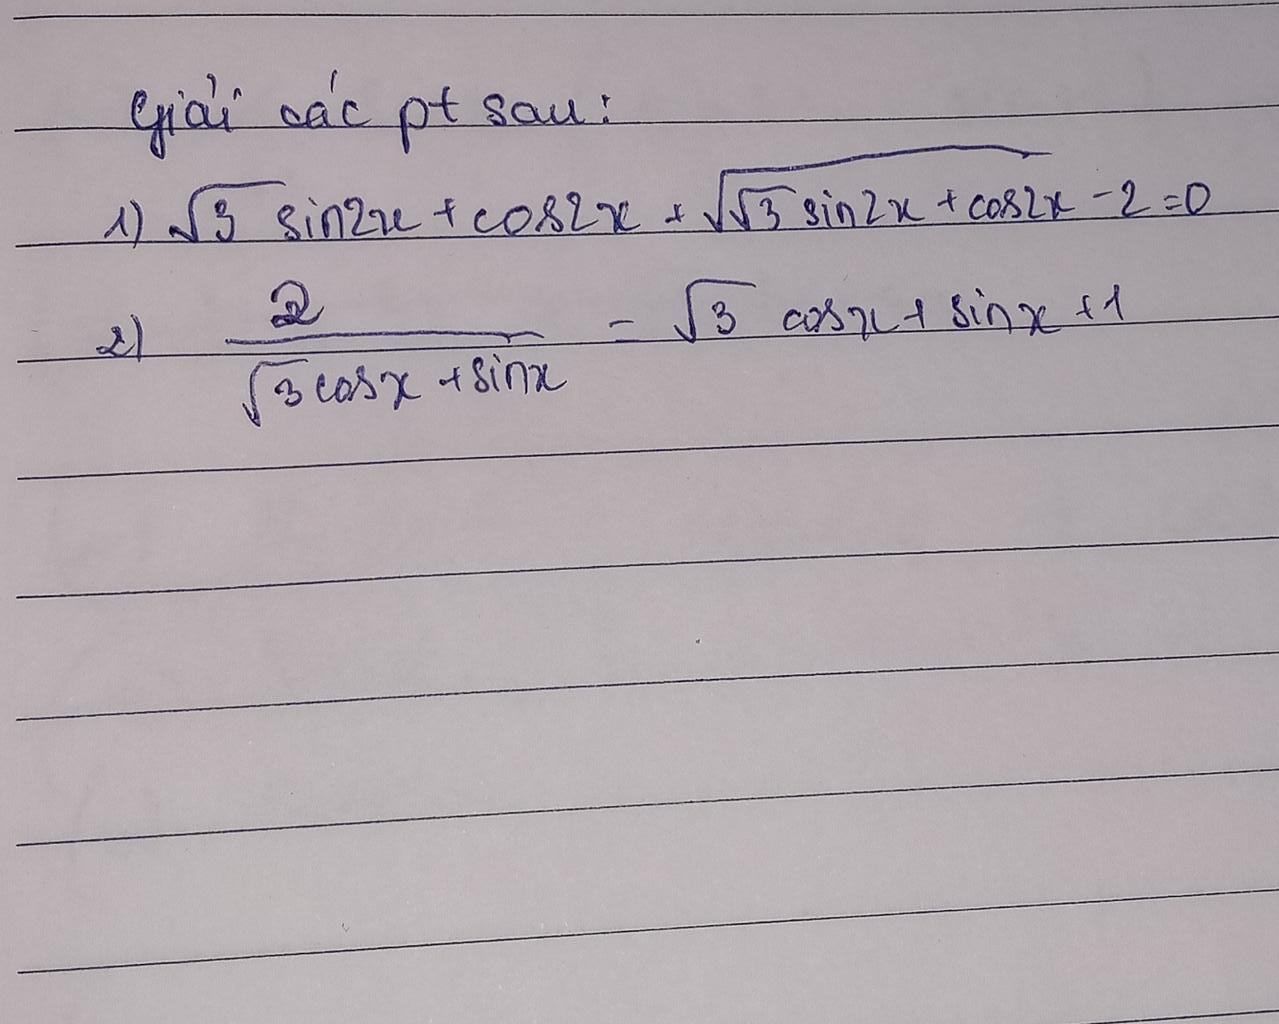 Giải các pt sau:
1) √3 sin2x + cos2x + √(√3 sin2x + cos2x) - 2 = 0
2) 2/(√3 cosx + sinx) = √3 cosx + sinx + 1